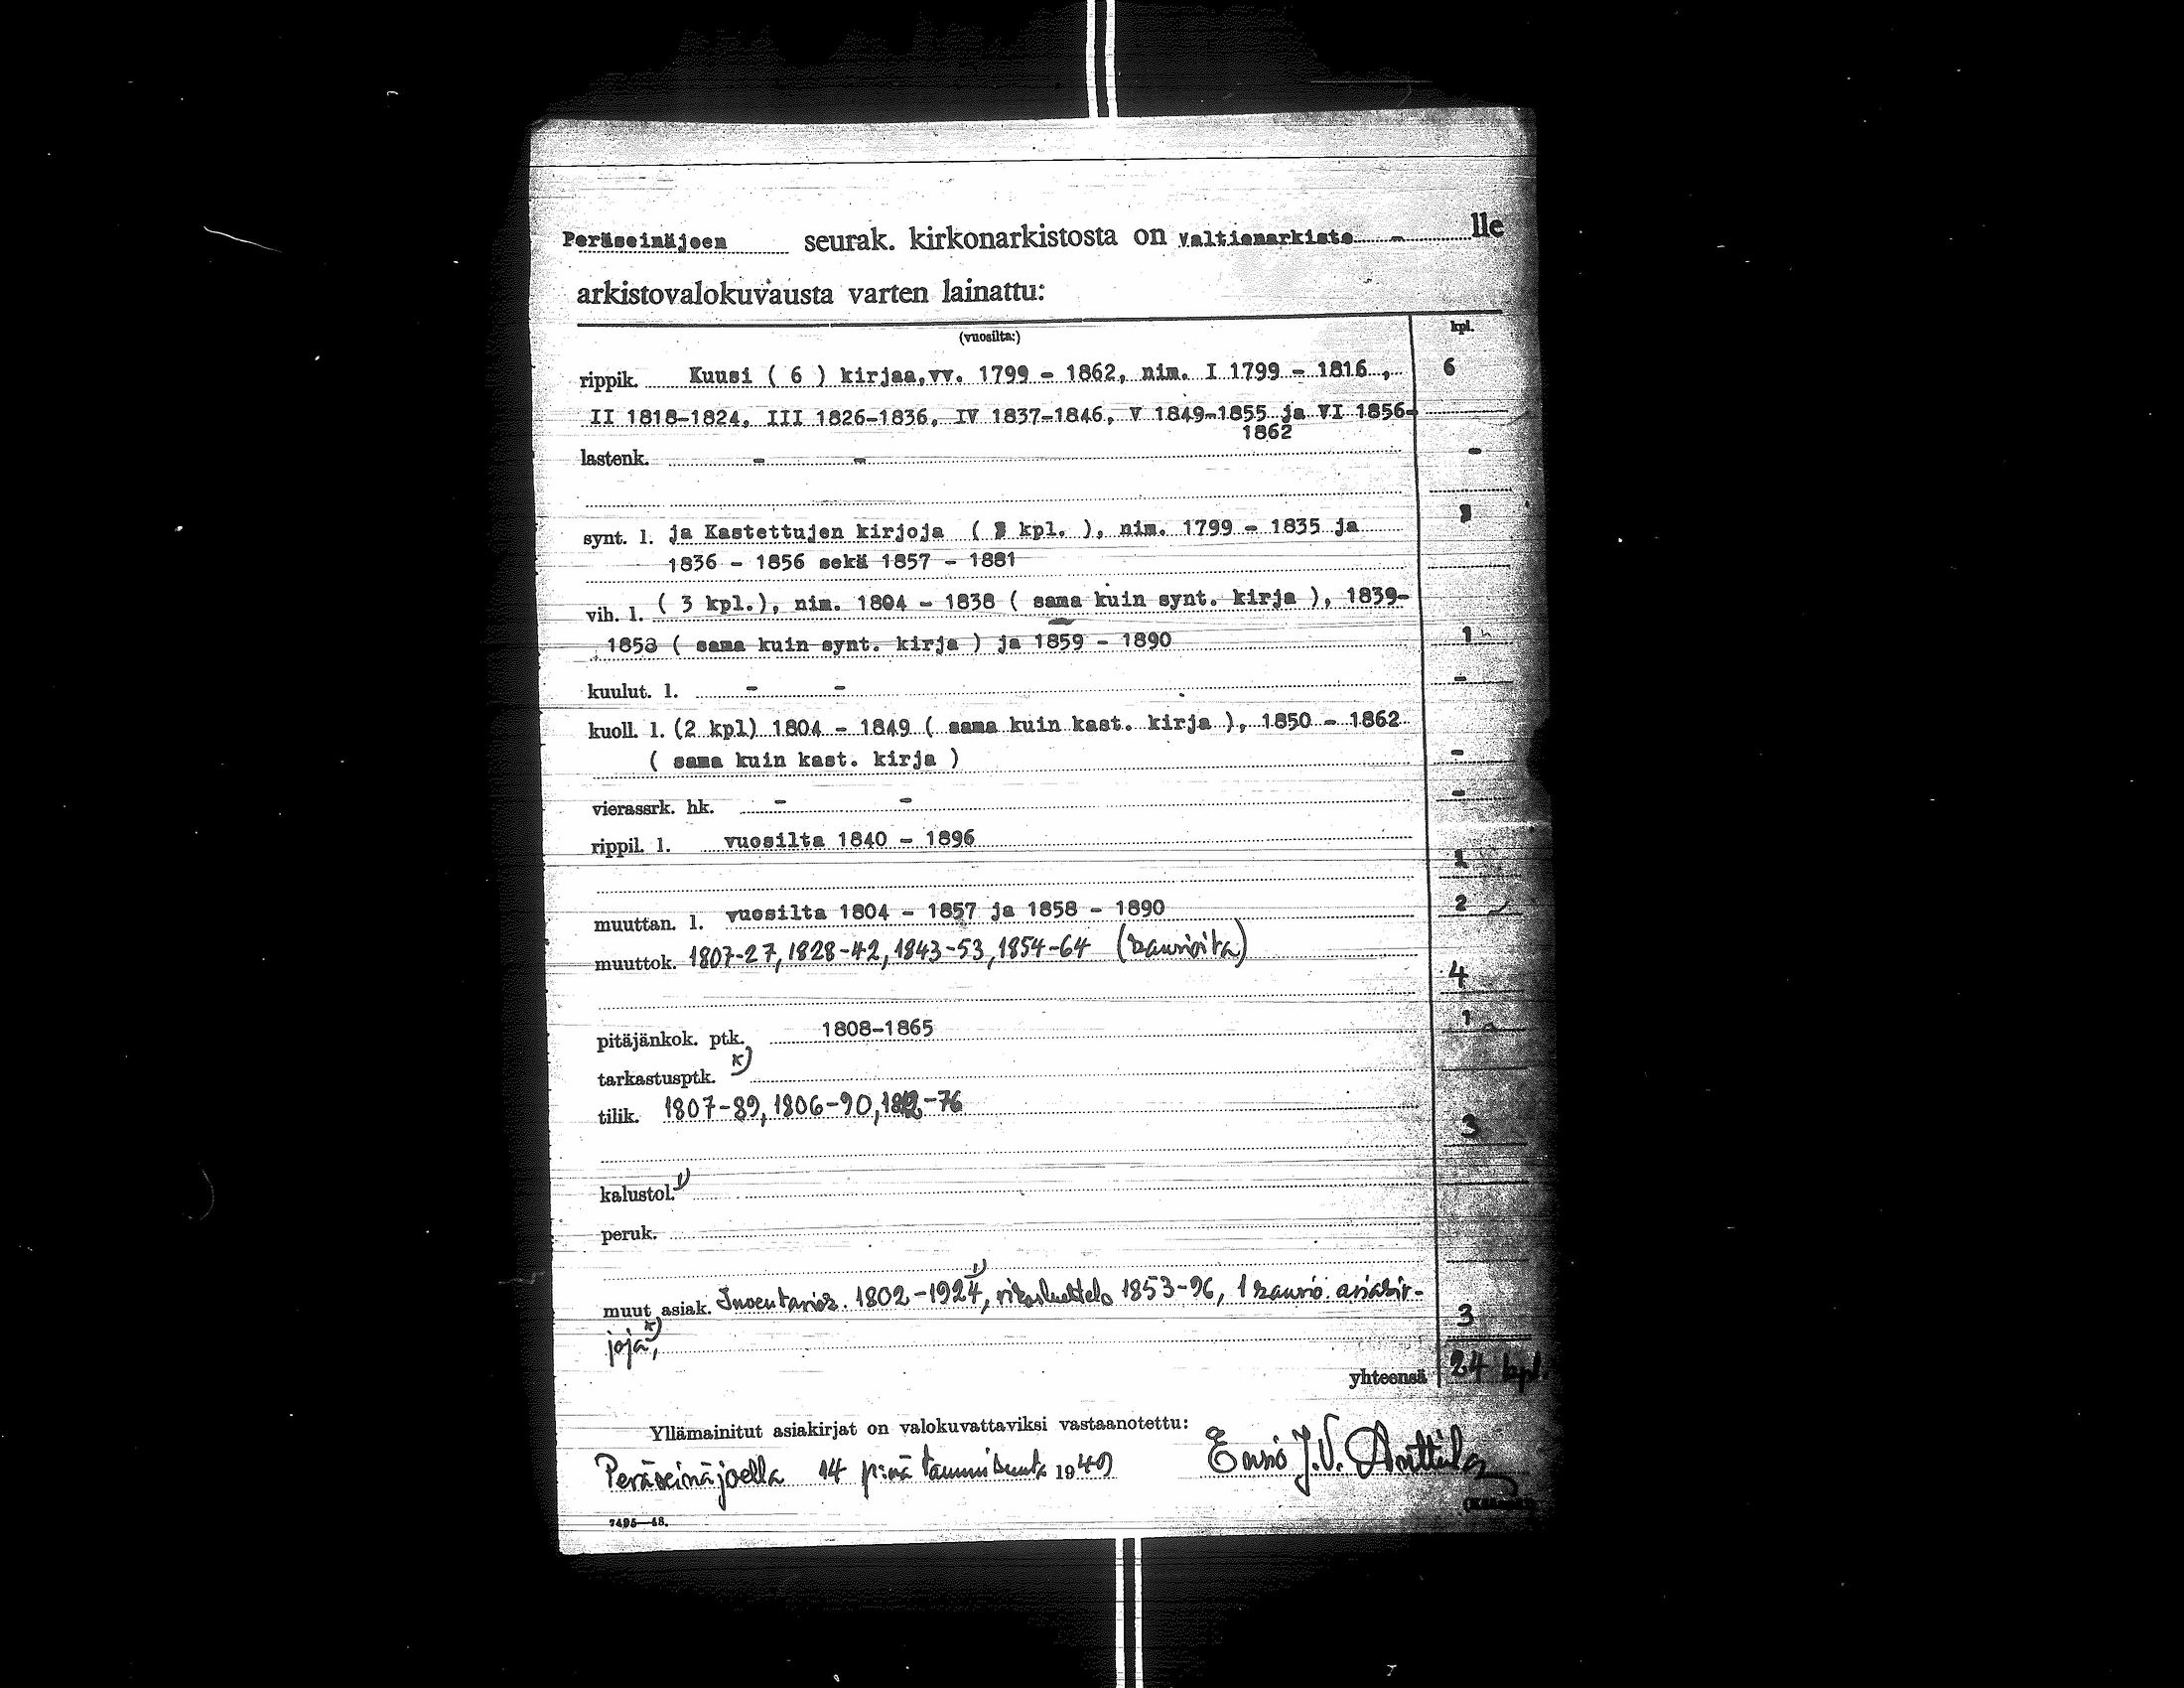 Peräseinäjoen seurak. kirkonarkistosta on Valtionarkisto - lle
arkistovalokuvausta varten lainattu:
(vuosilta:) kpl.
rippik. Kuusi ( 6 ) kirjaa,vv. 1799 - 1862, nim. I 1799 - 1816 , 6
II 1818-1824, III 1826-1836, IV 1837-1846, V 1849-1855 ja VI 1856-
1862
lastenk. - - -
synt. l. ja Kastettujen kirjoja ( 3 kpl. ), nim. 1799 - 1835 ja 3
1836 - 1856 sekä 1857 - 1881
vih. l. ( 3 kpl.), nim. 1804 - 1838 ( sama kuin synt. kirja ), 1839-
1858 ( sama kuin synt. kirja ) ja 1859 - 1890 1
kuulut. l. - - -
kuoll. l. (2 kpl) 1804 - 1849 ( sama kuin kast. kirja ), 1850 - 1862
( sama kuin kast. kirja ) -
vierassrk. hk. - - -
rippil. l. vuosilta 1840 - 1896 1
muuttan. l. vuosilta 1804 - 1857 ja 1858 - 1890 2
muuttok. 1807-27, 1828-42, 1843-53, 1854-64 (kansioita) 4
pitäjänkok. ptk. 1808-1865 1
tarkastusptk. x)
tilik. 1807-89, 1806-90, -76 3
kalustol. 1)
peruk.
muut asiak. Inventariok. 1802-1924 1), rikosluettelo 1853-96, 1 kansio asiakir- 3
joja x),
yhteensä 24 kpl.
Yllämainitut asiakirjat on valokuvattaviksi vastaanotettu:
Peräseinäjoella 14 p:nä tammikuuta 1949 Ensio J.V. Anttila
7495—48.